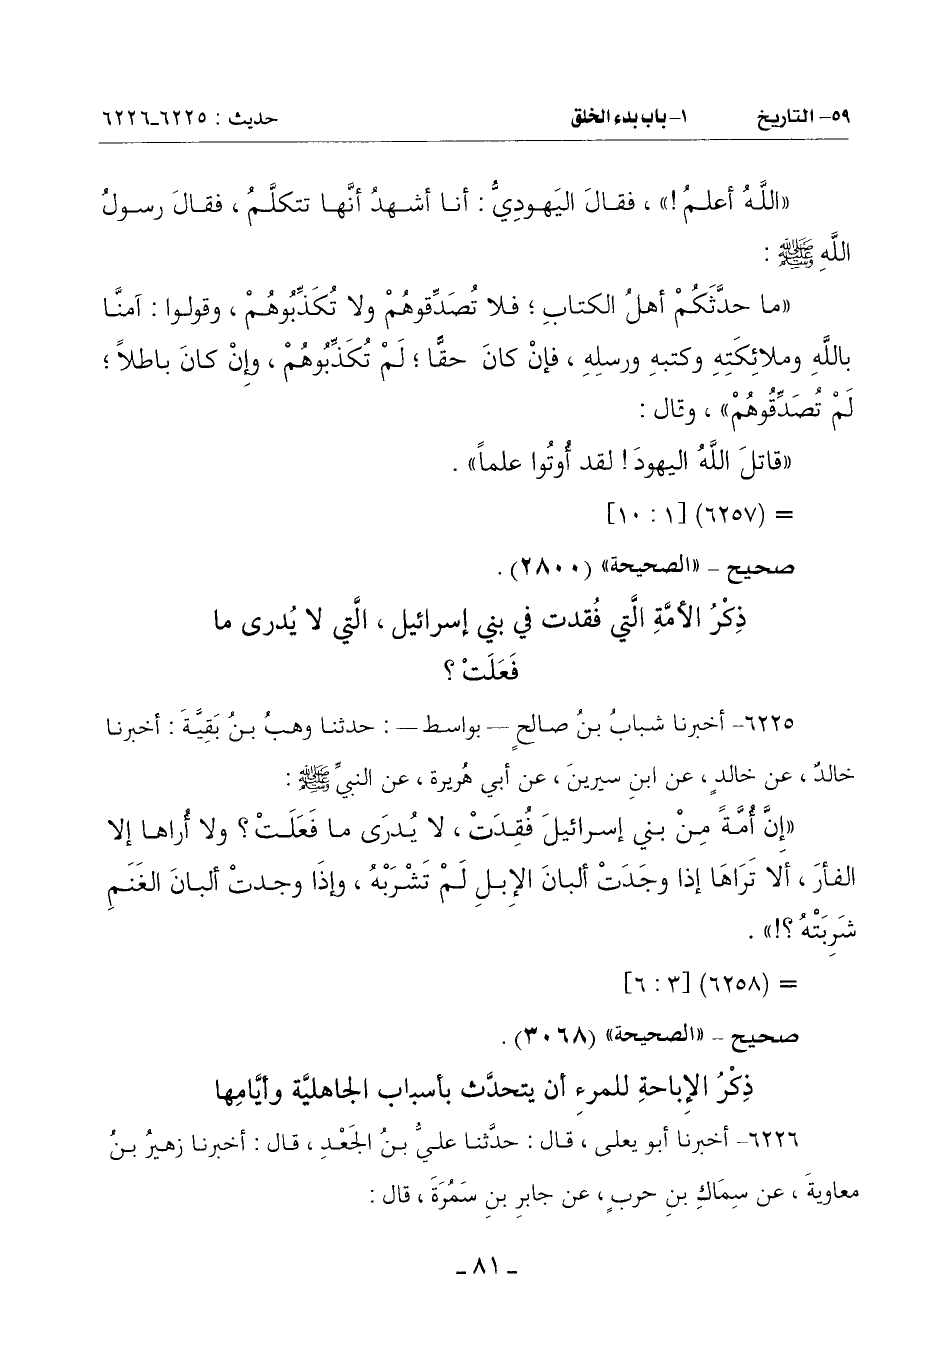 ٥٩- التاريخ ١- باب بدء الخلق حديث : ٦٢٢٥-٦٢٢٦
«اللَّهُ أعلمُ !» ، فقالَ اليَهوديُّ : أنا أشهدُ أنَّها تتكلَّمُ ، فقالَ رسولُ
اللَّهِ ﷺ :
«ما حدَّثَكُمْ أهلُ الكتابِ ؛ فلا تُصَدِّقوهُمْ ولا تُكَذِّبُوهُمْ ، وقولوا : آمنَّا
باللَّهِ وملائِكَتِهِ وكتبهِ ورسلِهِ ، فإنْ كانَ حقًّا ؛ لَمْ تُكَذِّبُوهُمْ ، وإنْ كانَ باطلاً ؛
لَمْ تُصَدِّقُوهُمْ» ، وقال :
«قاتلَ اللَّهُ اليهودَ ! لقد أُوتُوا علماً» .
= (٦٢٥٧) [١ : ١٠]
صحيح - «الصحيحة» (٢٨٠٠) .
ذِكْرُ الأمَّةِ الَّتي فُقدت في بني إسرائيل ، الَّتي لا يُدرى ما
فَعَلَتْ ؟
٦٢٢٥- أخبرنا شبابُ بنُ صالحٍ — بواسط — : حدثنا وهبُ بنُ بَقِيَّةَ : أخبرنا
خالدٌ ، عن خالدٍ ، عن ابنِ سيرينَ ، عن أبي هُريرة ، عن النبيِّ ﷺ :
«إنَّ أُمَّةً مِنْ بني إسرائيلَ فُقِدَتْ ، لا يُدرَى ما فَعَلَتْ ؟ ولا أُراها إلا
الفأرَ ، ألا تَرَاهَا إذا وجَدَتْ ألبانَ الإبلِ لَمْ تَشْرَبْهُ ، وإذَا وجدتْ ألبانَ الغَنَمِ
شَرِبَتْهُ ؟!» .
= (٦٢٥٨) [٣ : ٦]
صحيح - «الصحيحة» (٣٠٦٨) .
ذِكْرُ الإباحةِ للمرءِ أن يتحدَّث بأسباب الجاهليَّة وأيَّامِها
٦٢٢٦- أخبرنا أبو يعلى ، قال : حدَّثنا عليُّ بنُ الجَعْدِ ، قال : أخبرنا زهيرُ بنُ
معاويةَ ، عن سِمَاكِ بنِ حربٍ ، عن جابرِ بنِ سَمُرَةَ ، قال :
- ٨١ -